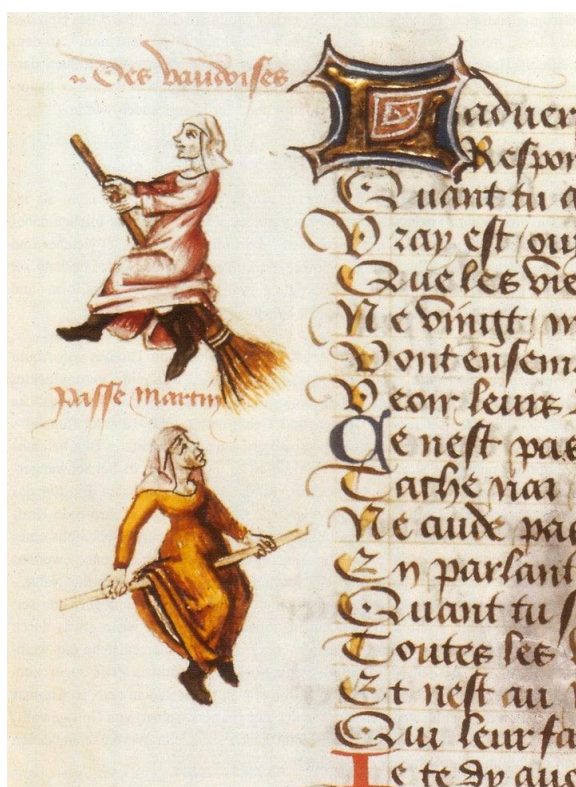 Des vaudoises
passe martin
Laduer
Respon
Quant tu a
Vray est / ouy
Que les vie
Ne vingt / m
Vont ensem
Veoir leurs
Ce nest pas
Tache nar
Ne cuide pas
En parlant
Quant tu
Toutes les
Et nest au
Qui leur fa
Je te dy que